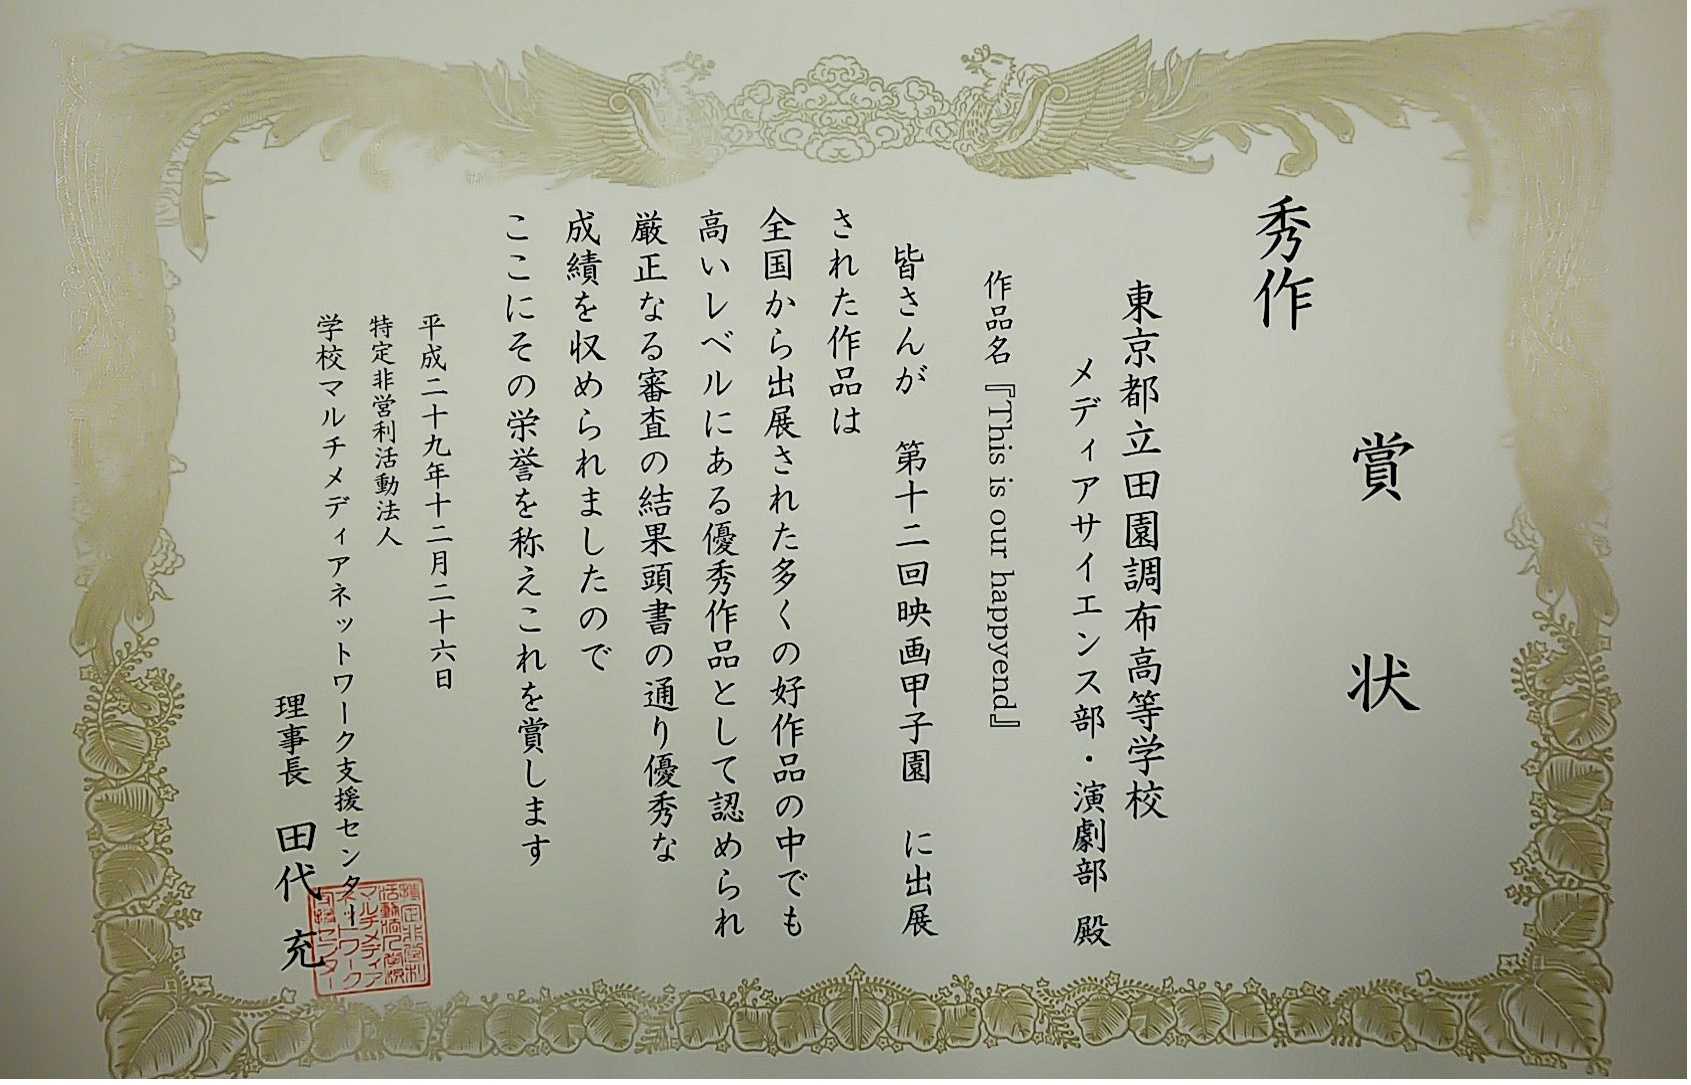 賞状
秀作
東京都立田園調布高等学校
メディアサイエンス部・演劇部 殿
作品名『This is our happyend』
皆さんが 第十二回映画甲子園 に出展
された作品は
全国から出展された多くの好作品の中でも
高いレベルにある優秀作品として認められ
厳正なる審査の結果頭書の通り優秀な
成績を収められましたので
ここにその栄誉を称えこれを賞します
平成二十九年十二月二十六日
特定非営利活動法人
学校マルチメディアネットワーク支援センター
理事長 田代 充